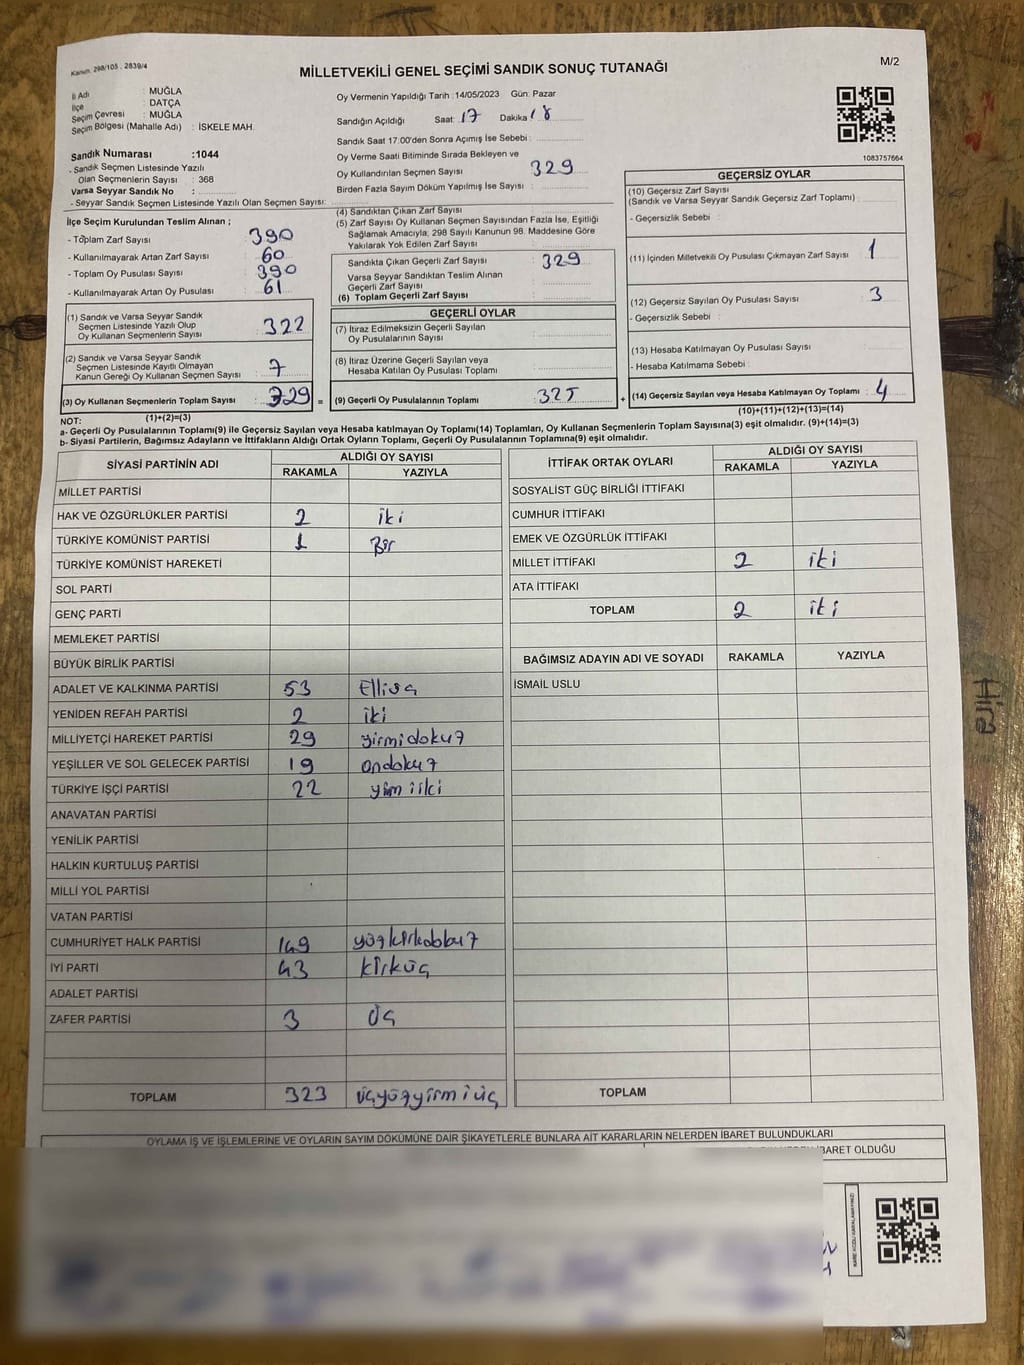 Kanun: 298/105 . 2839/4
MİLLETVEKİLİ GENEL SEÇİMİ SANDIK SONUÇ TUTANAĞI
M/2
İl Adı : MUĞLA
İlçe : DATÇA
Seçim Çevresi : MUĞLA
Seçim Bölgesi (Mahalle Adı) : İSKELE MAH.
Sandık Numarası :1044
- Sandık Seçmen Listesinde Yazılı
Olan Seçmenlerin Sayısı : 368
Varsa Seyyar Sandık No :
- Seyyar Sandık Seçmen Listesinde Yazılı Olan Seçmen Sayısı:
Oy Vermenin Yapıldığı Tarih :14/05/2023 Gün: Pazar
Sandığın Açıldığı Saat: 17 Dakika 18
Sandık Saat 17:00'den Sonra Açımış İse Sebebi :
Oy Verme Saati Bitiminde Sırada Bekleyen ve
Oy Kullandırılan Seçmen Sayısı : 329
Birden Fazla Sayım Döküm Yapılmış İse Sayısı :
1083757664
İlçe Seçim Kurulundan Teslim Alınan ;
- Toplam Zarf Sayısı : 390
- Kullanılmayarak Artan Zarf Sayısı : 60
- Toplam Oy Pusulası Sayısı : 390
- Kullanılmayarak Artan Oy Pusulası : 61
(1) Sandık ve Varsa Seyyar Sandık
Seçmen Listesinde Yazılı Olup
Oy Kullanan Seçmenlerin Sayısı : 322
(2) Sandık ve Varsa Seyyar Sandık
Seçmen Listesinde Kayıtlı Olmayan
Kanun Gereği Oy Kullanan Seçmen Sayısı : 7
(3) Oy Kullanan Seçmenlerin Toplam Sayısı : 329 =
(4) Sandıktan Çıkan Zarf Sayısı :
(5) Zarf Sayısı Oy Kullanan Seçmen Sayısından Fazla İse, Eşitliği
Sağlamak Amacıyla; 298 Sayılı Kanunun 98. Maddesine Göre
Yakılarak Yok Edilen Zarf Sayısı :
Sandıkta Çıkan Geçerli Zarf Sayısı : 329
Varsa Seyyar Sandıktan Teslim Alınan
Geçerli Zarf Sayısı :
(6) Toplam Geçerli Zarf Sayısı :
GEÇERLİ OYLAR
(7) İtiraz Edilmeksizin Geçerli Sayılan
Oy Pusulalarının Sayısı :
(8) İtiraz Üzerine Geçerli Sayılan veya
Hesaba Katılan Oy Pusulası Toplamı :
(9) Geçerli Oy Pusulalarının Toplamı : 325 +
GEÇERSİZ OYLAR
(10) Geçersiz Zarf Sayısı
(Sandık ve Varsa Seyyar Sandık Geçersiz Zarf Toplamı) :
- Geçersizlik Sebebi :
(11) İçinden Milletvekili Oy Pusulası Çıkmayan Zarf Sayısı : 1
(12) Geçersiz Sayılan Oy Pusulası Sayısı : 3
- Geçersizlik Sebebi :
(13) Hesaba Katılmayan Oy Pusulası Sayısı :
- Hesaba Katılmama Sebebi :
(14) Geçersiz Sayılan veya Hesaba Katılmayan Oy Toplamı : 4
NOT: (1)+(2)=(3)
(10)+(11)+(12)+(13)=(14)
a- Geçerli Oy Pusulalarının Toplamı(9) ile Geçersiz Sayılan veya Hesaba Katılmayan Oy Toplamı(14) Toplamları, Oy Kullanan Seçmenlerin Toplam Sayısına(3) eşit olmalıdır. (9)+(14)=(3)
b- Siyasi Partilerin, Bağımsız Adayların ve İttifakların Aldığı Ortak Oyların Toplamı, Geçerli Oy Pusulalarının Toplamına(9) eşit olmalıdır.
SİYASİ PARTİNİN ADI ALDIĞI OY SAYISI
RAKAMLA YAZIYLA
MİLLET PARTİSİ
HAK VE ÖZGÜRLÜKLER PARTİSİ 2 iki
TÜRKİYE KOMÜNİST PARTİSİ 1 Bir
TÜRKİYE KOMÜNİST HAREKETİ
SOL PARTİ
GENÇ PARTİ
MEMLEKET PARTİSİ
BÜYÜK BİRLİK PARTİSİ
ADALET VE KALKINMA PARTİSİ 53 Elliüç
YENİDEN REFAH PARTİSİ 2 iki
MİLLİYETÇİ HAREKET PARTİSİ 29 yirmidokuz
YEŞİLLER VE SOL GELECEK PARTİSİ 19 ondokuz
TÜRKİYE İŞÇİ PARTİSİ 22
ANAVATAN PARTİSİ
YENİLİK PARTİSİ
HALKIN KURTULUŞ PARTİSİ
MİLLİ YOL PARTİSİ
VATAN PARTİSİ
CUMHURİYET HALK PARTİSİ 149 yüzkırkdokuz
İYİ PARTİ 43 kırküç
ADALET PARTİSİ
ZAFER PARTİSİ 3 üç
TOPLAM 323 üçyüzyirmiüç
İTTİFAK ORTAK OYLARI ALDIĞI OY SAYISI
RAKAMLA YAZIYLA
SOSYALİST GÜÇ BİRLİĞİ İTTİFAKI
CUMHUR İTTİFAKI
EMEK VE ÖZGÜRLÜK İTTİFAKI
MİLLET İTTİFAKI 2 iki
ATA İTTİFAKI
TOPLAM 2 iki
BAĞIMSIZ ADAYIN ADI VE SOYADI RAKAMLA YAZIYLA
İSMAİL USLU
TOPLAM
OYLAMA İŞ VE İŞLEMLERİNE VE OYLARIN SAYIM DÖKÜMÜNE DAİR ŞİKAYETLERLE BUNLARA AİT KARARLARIN NELERDEN İBARET BULUNDUKLARI
İBARET OLDUĞU